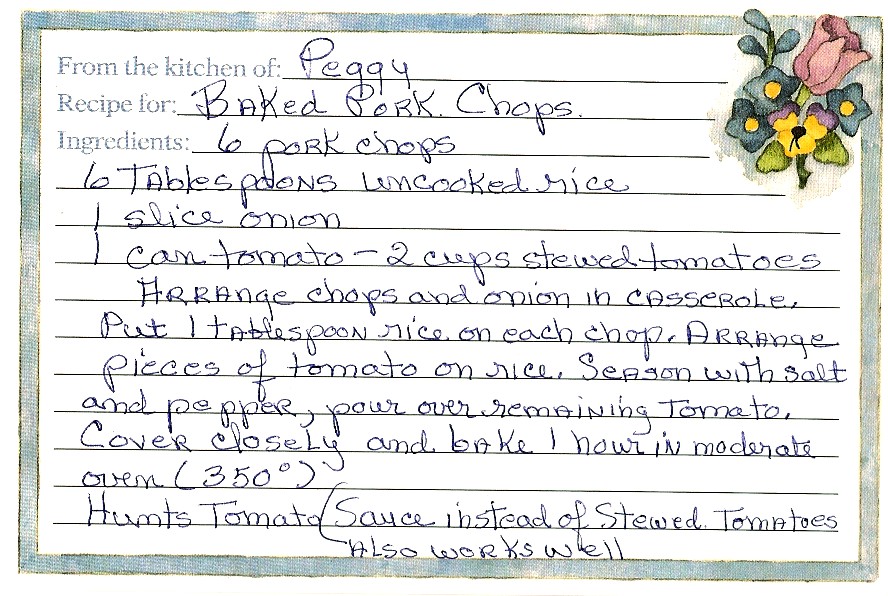 From the kitchen of: Peggy
Recipe for: Baked Pork Chops.
Ingredients: 6 pork chops
6 Tablespoons uncooked rice
1 slice onion
1 can tomato - 2 cups stewed tomatoes
Arrange chops and onion in casserole.
Put 1 tablespoon rice on each chop. Arrange
pieces of tomato on rice. Season with salt
and pepper, pour over remaining Tomato.
Cover closely and bake 1 hour in moderate
oven (350°)
Hunts Tomato (Sauce instead of Stewed Tomatoes
Also works well